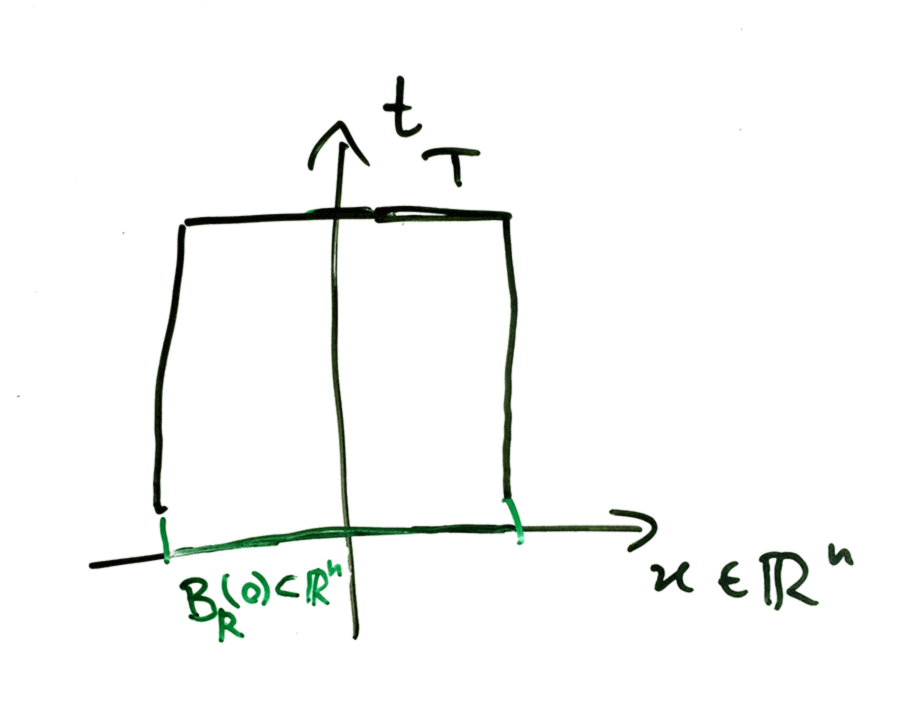 t
T
B_R(0) ⊂ ℝⁿ
x ∈ ℝⁿ